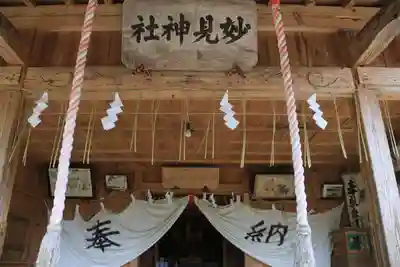 社神見妙
奉納